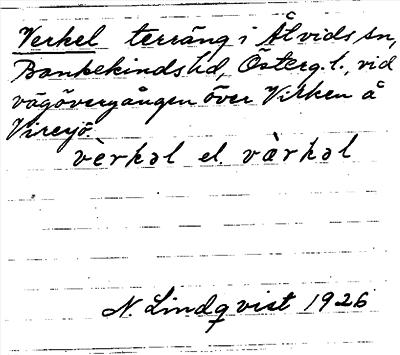 Verkel terräng i Åtvids sn,
Bankekinds hd, Österg. l., vid
vägövergången över Virken å
Vireyö.
vèrkəl el. vàrkəl
N. Lindqvist 1926